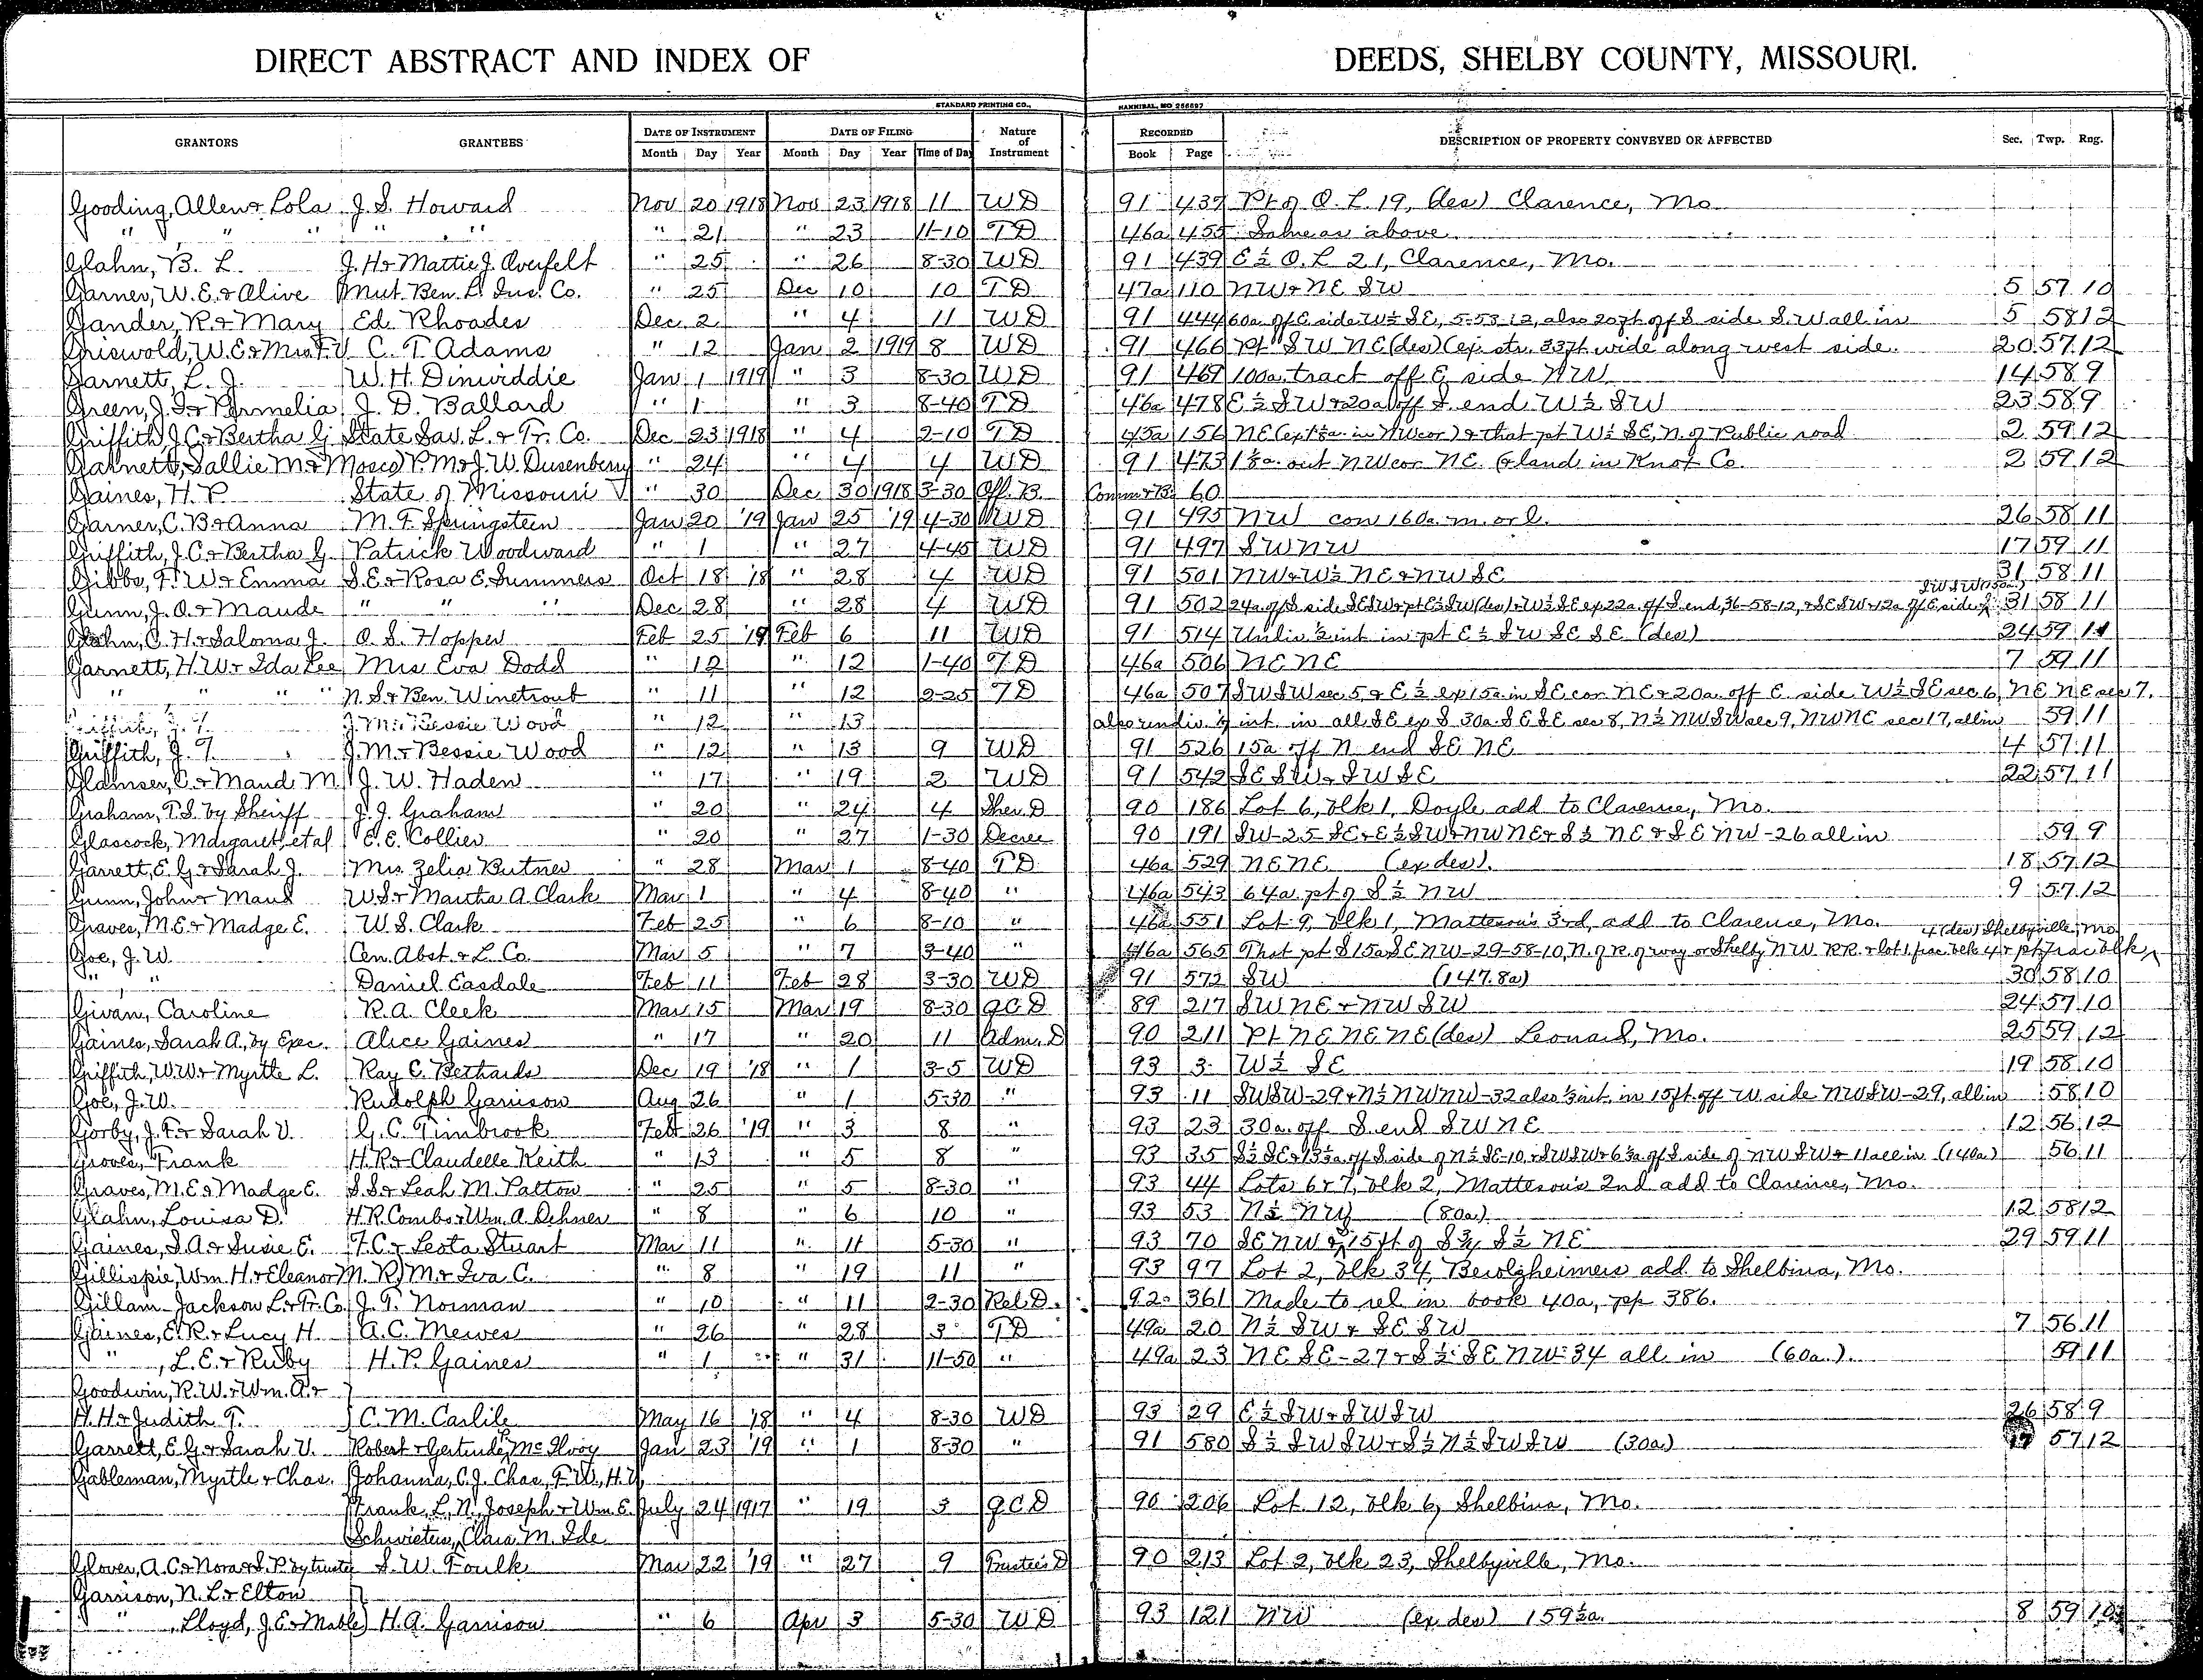 DIRECT ABSTRACT AND INDEX OF DEEDS, SHELBY COUNTY, MISSOURI.
STANDARD PRINTING CO., HANNIBAL, MO 256697
GRANTORS GRANTEES DATE OF INSTRUMENT DATE OF FILING Nature of Instrument RECORDED DESCRIPTION OF PROPERTY CONVEYED OR AFFECTED Sec. Twp. Rng.
Month Day Year Month Day Year Time of Day Book Page
Gooding, Allen & Lola J. S. Howard Nov 20 1918 Nov 23 1918 11 WD 91 437 Pt of O. L. 19, (des) Clarence, Mo.
" " " " " " 21 " 23 11-10 TD 46a 455 Same as above.
Glahn, B. L. J. H & Mattie J. Overfelt " 25 " 26 8-30 WD 91 439 E½ O. L 21, Clarence, Mo.
Garner, W. E. & Alive Mut. Ben. L. Ins. Co. " 25 Dec 10 10 TD 47a 110 NW & NE SW 5 57 10
Gander, R. & Mary Ed. Rhoades Dec 2 " 4 11 WD 91 444 60a. off E. side W½ SE, 5-58-12, also 20ft off S side S.W all in 5 58 12
Griswold, W. E & Mrs F. V. C. T. Adams " 12 Jan 2 1919 8 WD 91 466 Pt SW NE (des) (ex. str. 33ft wide along west side. 20 57 12
Garnett, L. J. W. H. Dinwiddie Jan 1 1919 " 3 8-30 WD 91 469 100a. tract off E side NW 14 58 9
Green, J. I & Permelia J. D. Ballard " 1 " 3 8-40 TD 46a 478 E½ SW & 20a off S. end W½ SW 23 58 9
Griffith, J. C & Bertha G. State Sav. L. & Tr. Co. Dec 23 1918 " 4 2-10 TD 45a 156 NE (ex 1⅛a. in NW cor) & that pt W½ SE, N. of Public road 2 59 12
Garnett, Sallie M & Mosco P. M & J. W. Dusenberry " 24 " 4 4 WD 91 473 1⅛a. out NW cor NE. (& land in Knox Co. 2 59 12
Gaines, H. P. State of Missouri " 30 Dec 30 1918 3-30 Off. B. Comm & B. 60
Garner, C. B & Anna M. F. Springsteen Jan 20 '19 Jan 25 '19 4-30 WD 91 495 NW con 160a. m. or l. 26 58 11
Griffith, J. C. & Bertha G. Patrick Woodward " 1 " 27 4-45 WD 91 497 SW NW 17 59 11
Gibbs, F. W & Emma S. E. & Rosa E. Summers Oct 18 '18 " 28 4 WD 91 501 NW & W½ NE & NW SE 31 58 11
Gunn, J. O. & Maude " " " Dec 28 " 28 4 WD 91 502 24a. off S side SE SW & pt E½ SW (des) & W½ SE ex 22a. off S end, 36-58-12, & SE SW & 12a off E side of SW SW 31 58 11
Glahn, C. H. & Saloma J. O. S. Hopper Feb 25 '19 Feb 6 11 WD 91 514 Undiv ½ int in pt E½ SW SE SE (des) 24 59 11
Garnett, H. W & Ida Lee Mrs Eva Dodd " 12 " 12 1-40 TD 46a 506 NE NE 7 59 11
" " " " N. S. & Ben Winetroub " 11 " 12 2-25 TD 46a 507 SW SW sec 5 & E½ ex 15a. in SE cor NE & 20a. off E. side W½ SE sec 6, NE NE sec 7,
Griffith, J. T. J. M. & Bessie Wood " 12 " 13 also undiv. ½ int. in all SE ex S 30a SE SE sec 8, N½ NW SW sec 9, NW NE sec 17, all in 59 11
Griffith, J. T. J. M. & Bessie Wood " 12 " 13 9 WD 91 526 15a off N. end SE NE 4 57 11
Glamser, C. & Maud M. J. W. Haden " 17 " 19 2 WD 91 542 SE SW & SW SE 22 57 11
Graham, T. S. by Sheriff J. J. Graham " 20 " 24 4 Sher. D 90 186 Lot 6, blk 1, Doyle add to Clarence, Mo.
Glascock, Margaret, et al E. E. Collier " 20 " 27 1-30 Decree 90 191 SW-25 SE & E½ SW & NW NE & S½ NE & SE NW-26 all in 59 9
Garrett, E. G. & Sarah J. Mrs. Zelia Butner " 28 Mar 1 8-40 TD 46a 529 NE NE (ex des). 18 57 12
Gunn, John & Maud W. S. & Martha A. Clark Mar 1 " 4 8-40 " 46a 543 64a. pt of S½ NW 9 57 12
Graves, M. E. & Madge E. W. S. Clark Feb 25 " 6 8-10 " 46a 551 Lot 9, blk 1, Matteson's 3rd, add to Clarence, Mo.
Goe, J. W. Cen. Abst. & L. Co. Mar 5 " 7 3-40 " 46a 565 That pt S 15a SE NW-29-58-10, N. of R. of way or Shelby NW. RR. & lot 1, frac. blk 4 & pt frac blk 4 (des) Shelbyville, Mo
" " Daniel Easdale Feb 11 Feb 28 3-30 WD 91 572 SW (147.8a) 30 58 10
Givan, Caroline R. A. Cleek Mar 15 Mar 19 8-30 QCD 89 217 SW NE & NW SW 24 57 10
Gaines, Sarah A., by Exec. Alice Gaines " 17 " 20 11 Adm. D 90 211 Pt NE NE NE (des) Leonard, Mo. 25 59 12
Griffith, W. W. & Myrtle L. Ray C. Bethards Dec 19 '18 " 1 3-5 WD 93 3 W½ SE 19 58 10
Goe, J. W. Rudolph Garrison Aug 26 " 1 5-30 " 93 11 SW SW-29 & N½ NW NW-32 also ⅓ int. in 15ft. off W. side NW SW-29, all in 58 10
Gorby, J. F. & Sarah V. G. C. Timbrook Feb 26 '19 " 3 8 " 93 23 30a. off S. end SW NE 12 56 12
Groves, Frank H. R. & Claudelle Keith " 13 " 5 8 " 93 35 S½ SE & 13⅓a. off S side of N½ SE-10, & SW SW & 6⅔a off S. side of NW SW & 11 all in (140a) 56 11
Graves, M. E. & Madge E. S. S. & Leah M. Patton " 25 " 5 8-30 " 93 44 Lots 6 & 7, blk 2, Matteson's 2nd add to Clarence, Mo.
Glahn, Louisa D. H. R. Combs & Wm. A. Dehner " 8 " 6 10 " 93 53 N½ NW (80a) 12 58 12
Gaines, S. A. & Susie E. F. C. & Leota Stuart Mar 11 " 11 5-30 " 93 70 SE NW & 15ft of S¾ S½ NE 29 59 11
Gillispie, Wm. H. & Eleanor M. R. M. & Iva C. " 8 " 19 11 " 93 97 Lot 2, blk 34, Berolzheimers add to Shelbina, Mo.
Gillam-Jackson L. & Tr. Co. J. T. Norman " 10 " 11 2-30 Rel. D. 92 361 Made to rel. in book 40a, pp 386.
Gaines, E. R. & Lucy H. A. C. Mewes " 26 " 28 3 TD 49a 20 N½ SW & SE SW 7 56 11
" , L. E. & Ruby H. P. Gaines " 1 " 31 11-50 " 49a 23 NE SE-27 & S½ SE NW-34 all in (60a.). 59 11
Goodwin, R. W. & Wm. A. &
H. H. & Judith T. C. M. Carlile May 16 '18 " 4 8-30 WD 93 29 E½ SW & SW SW 26 58 9
Garrett, E. G. & Sarah V. Robert & Gertrude P. McIlvoy Jan 23 '19 " 1 8-30 " 91 580 S½ SW SW & S½ N½ SW SW (30a) 57 12
Gableman, Myrtle & Chas. Johanna, C. J. Chas, F. W., H. V,
Frank, L. N., Joseph & Wm. E. July 24 1917 " 19 3 QCD 90 206 Lot 12, blk 6, Shelbina, Mo.
Schwieters, Clara M. Ide
Glover, A. C. & Nora & S. P. by trustee S. W. Foulk Mar 22 '19 " 27 9 Trustee's D 90 213 Lot 2, blk 23, Shelbyville, Mo.
Garrison, N. L. & Elton
" , Lloyd, J. E. & Mable H. A. Garrison " 6 Apr 3 5-30 WD 93 121 NW (ex des) 159½a. 8 59 10